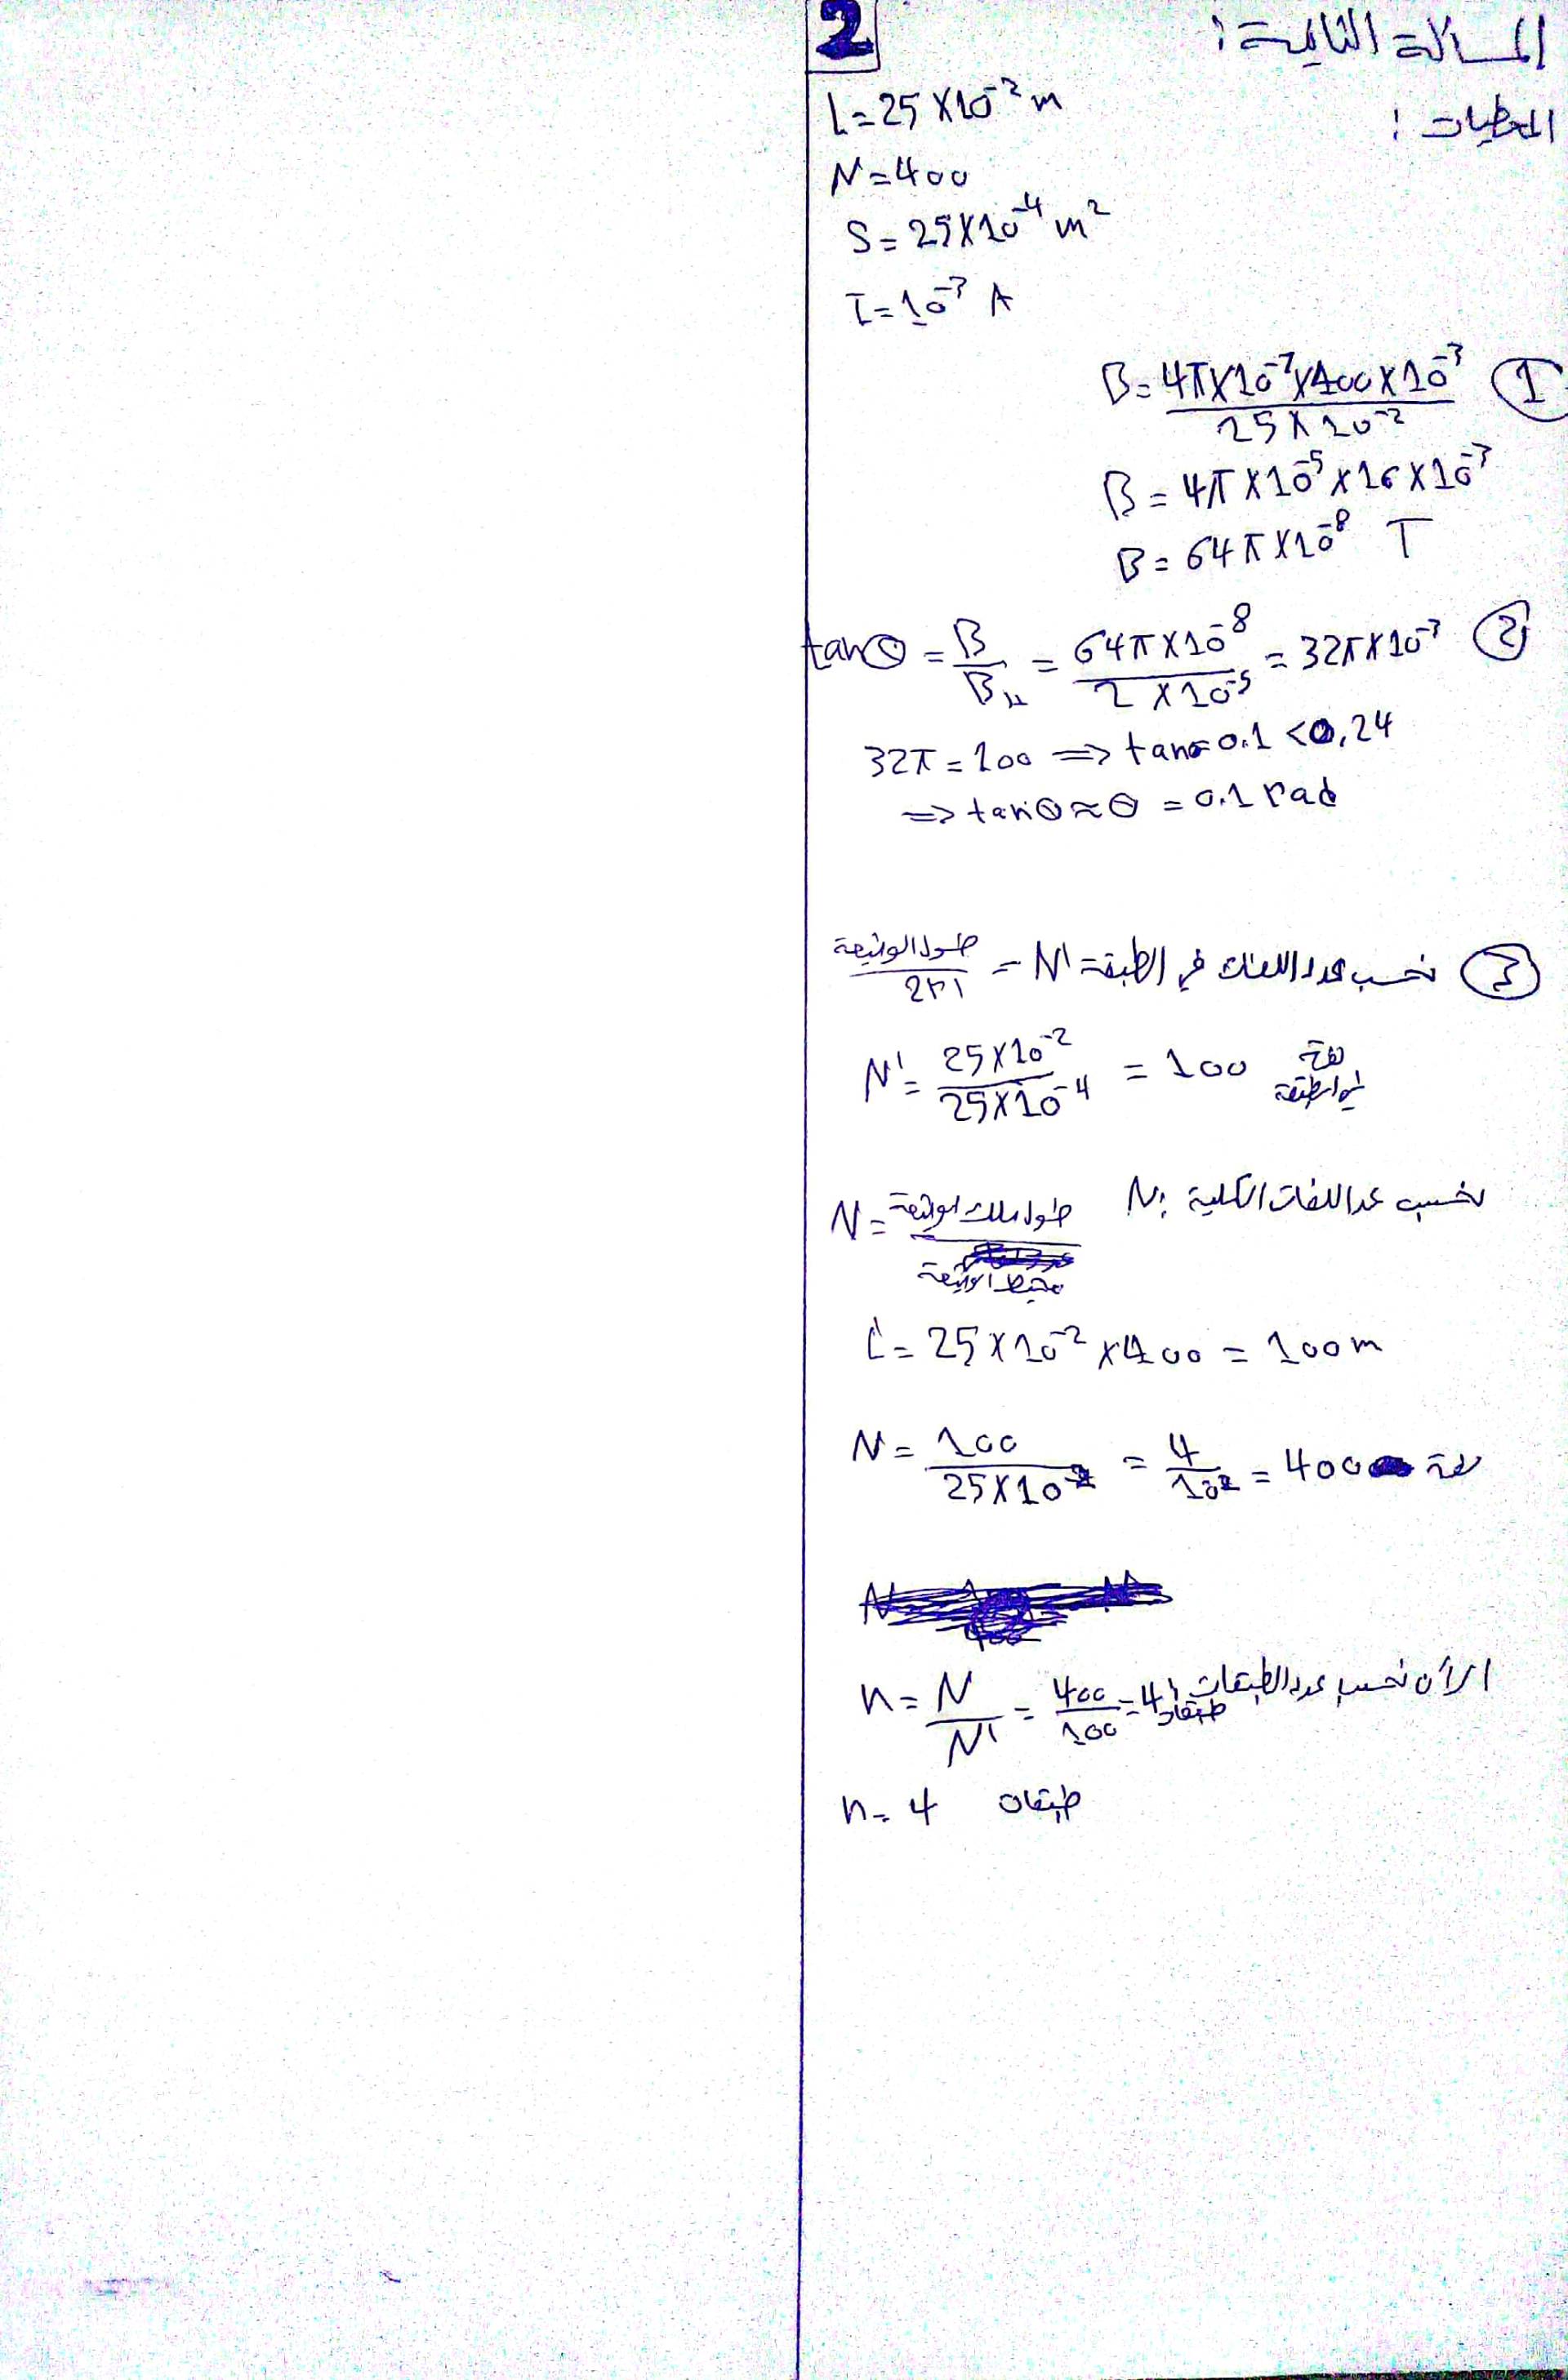 2
المسألة الثانية:
المعطيات:
L=25×10⁻² m
N=400
S=25×10⁻⁴ m²
I=10⁻³ A
① B=4π×10⁻⁷×400×10⁻³ / 25×10⁻²
B=4π×10⁻⁵×16×10⁻³
B=64π×10⁻⁸ T
② tanθ = B/B_H = 64π×10⁻⁸ / 2×10⁻⁵ = 32π×10⁻³
32π=100 ⇒ tan=0.1 <0,24
⇒ tanθ≈θ =0.1 rad
③ نحسب عدد اللفات في الطبقة N' = طول الوشيعة / 2r'
N'= 25×10⁻² / 25×10⁻⁴ = 100 لفة في الطبقة
نحسب عدد اللفات الكلية N:
N= طول سلك الوشيعة / محيط الوشيعة
L'=25×10⁻²×400=100m
N= 100 / 25×10⁻² = 4 / 10⁻² =400 لفة
الأن نحسب عدد الطبقات: n= N/N' = 400/100 =4 طبقات
n=4 طبقات